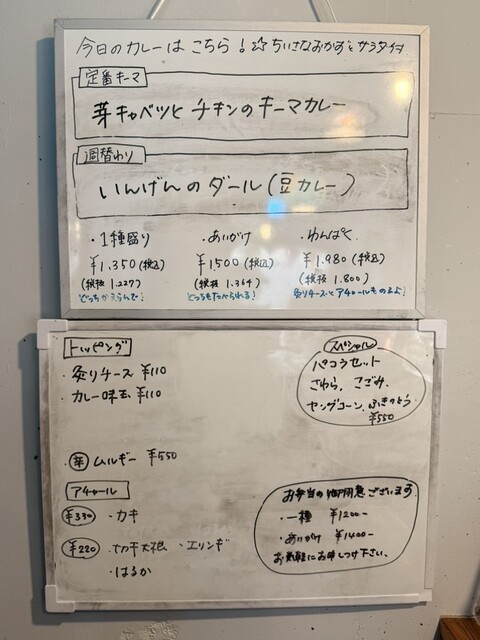 今日のカレーは こちら！☆ ちいさなおかずとサラダ付
定番キーマ
芽キャベツと チキンの キーマカレー
週替わり
いんげんの ダール（豆カレー）
・1種盛り
￥1,350(税込)
(税抜 1.227)
どっちかえらんで！
・あいがけ
￥1500(税込)
(税抜 1.364)
どっちもたべられる！
・わんぱく
￥1.980(税込)
(税抜 1.800)
炙りチーズとアチャールものるよ！
トッピング
・炙りチーズ ￥110
・カレー味玉 ￥110
・辛 ムルギー ￥550
アチャール
￥330 ・カキ
￥220 ・切干大根 ・エリンギ
・はるか
スペシャル
パコラセット
さわら、こごみ、
ヤングコーン、ふきのとう
￥550
お弁当の御用意ございます
・一種 ￥1200-
・あいがけ ￥1400-
お気軽にお申しつけ下さい、